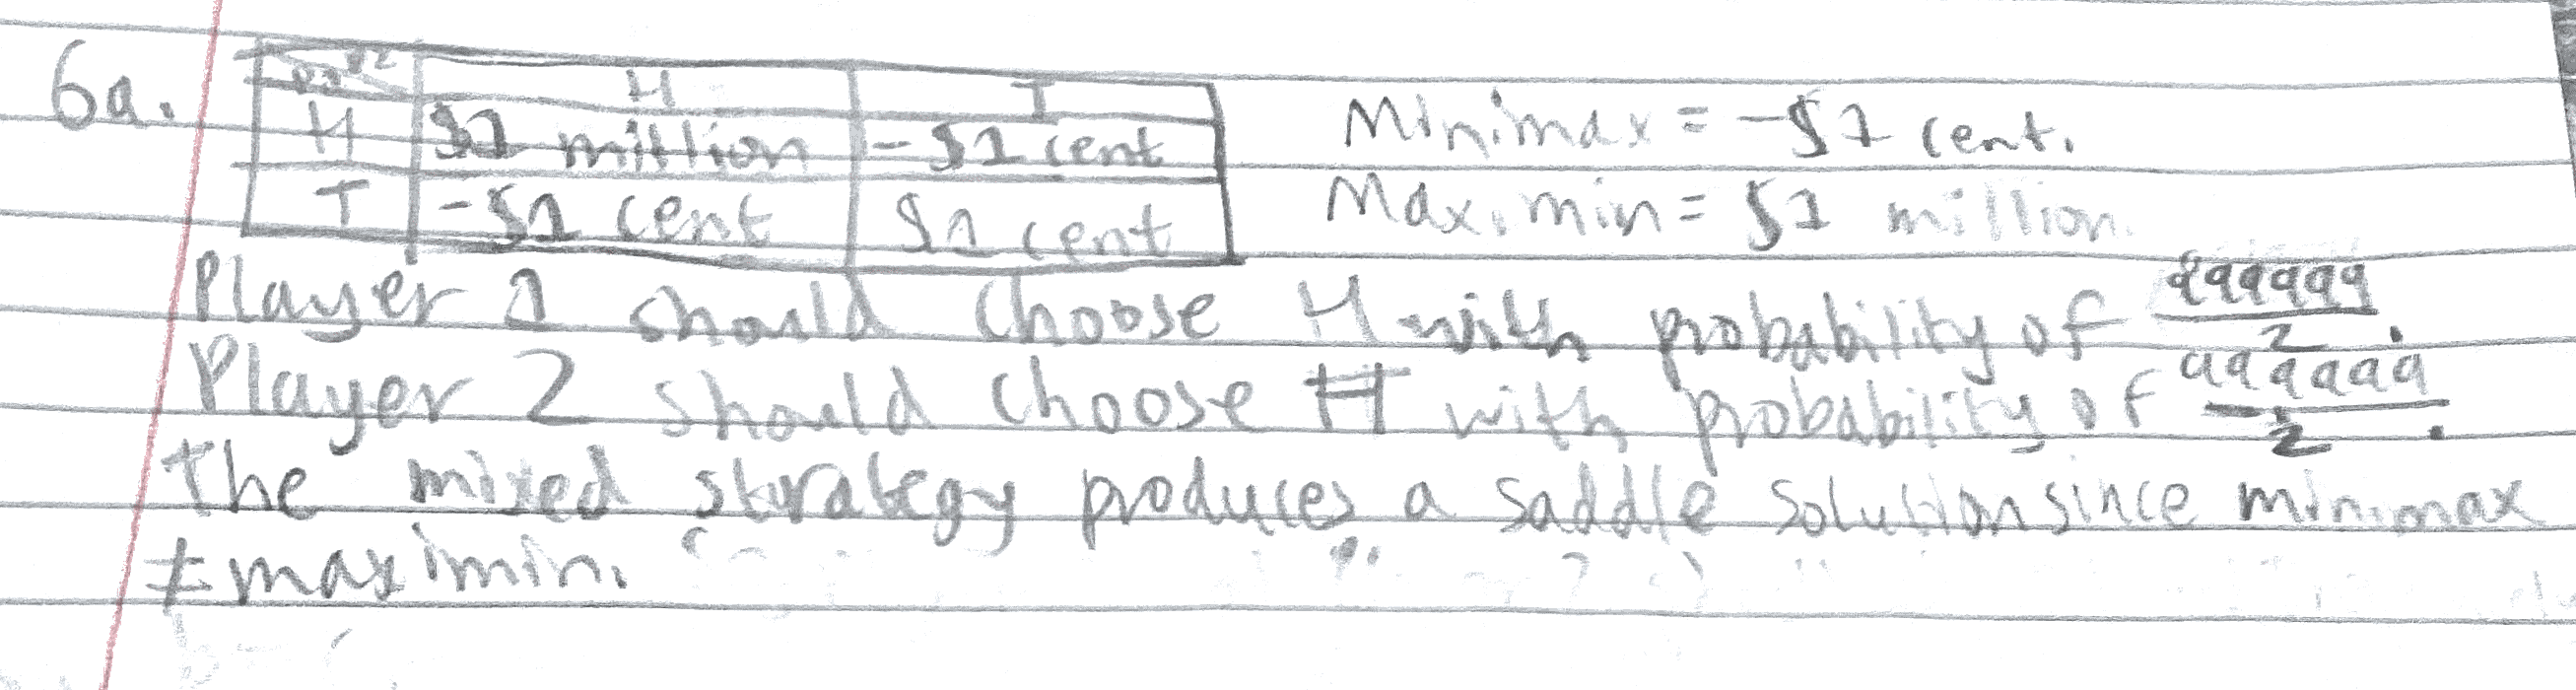 6a.
P2
H T
H $1 million -$1 cent
T -$1 cent $1 cent
Minimax = -$1 cent.
Maximin = $1 million.
Player 1 should choose H with probability of 999999/2.
Player 2 should choose H with probability of 999999/2.
the mixed strategy produces a saddle solution since minimax
≠ maximin.